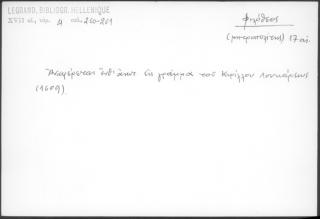 LEGRAND, BIBLIOGR. HELLENIQUE
XVII s., τόμ. 4 σελ. 260-261
Φιλόθεος
(μητροπολίτης) 17 αἰ.
Ἀναφέρεται ἐνθάδε εἰς γράμμα τοῦ Κυρίλλου Λουκάρεως
(1609).